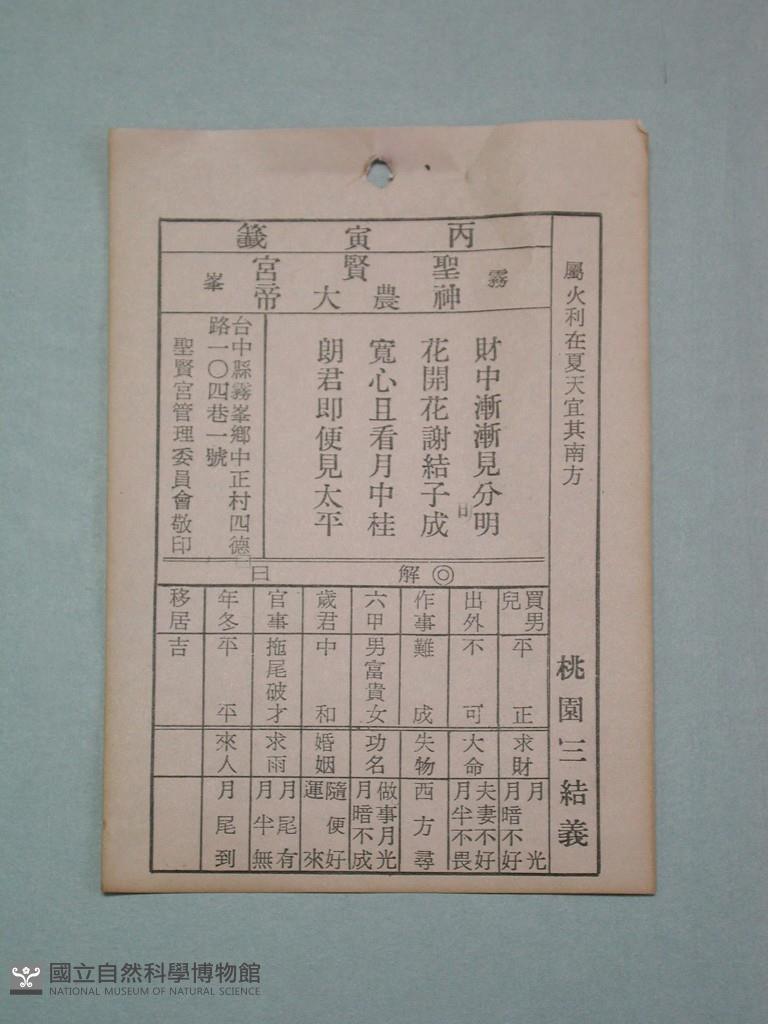 丙寅籤
霧峯
聖賢宮
神農大帝
屬火利在夏天宜其南方
桃園三結義
財中漸漸見分明
花開花謝結子成
寬心且看月中桂
朗君即便見太平
台中縣霧峯鄉中正村四德
路一〇四巷一號
聖賢宮管理委員會敬印
◎解曰
買男兒 平正
出外 不可
作事 難成
六甲 男富貴女
歲君 中和
官事 拖尾破才
年冬 平平
移居 吉
求財 月光 月暗不好
大命 夫妻不好 月半不畏
失物 西方尋
功名 做事月光 月暗不成
婚姻 隨便好 運來
求雨 月尾有 月半無
來人 月尾到
國立自然科學博物館
NATIONAL MUSEUM OF NATURAL SCIENCE